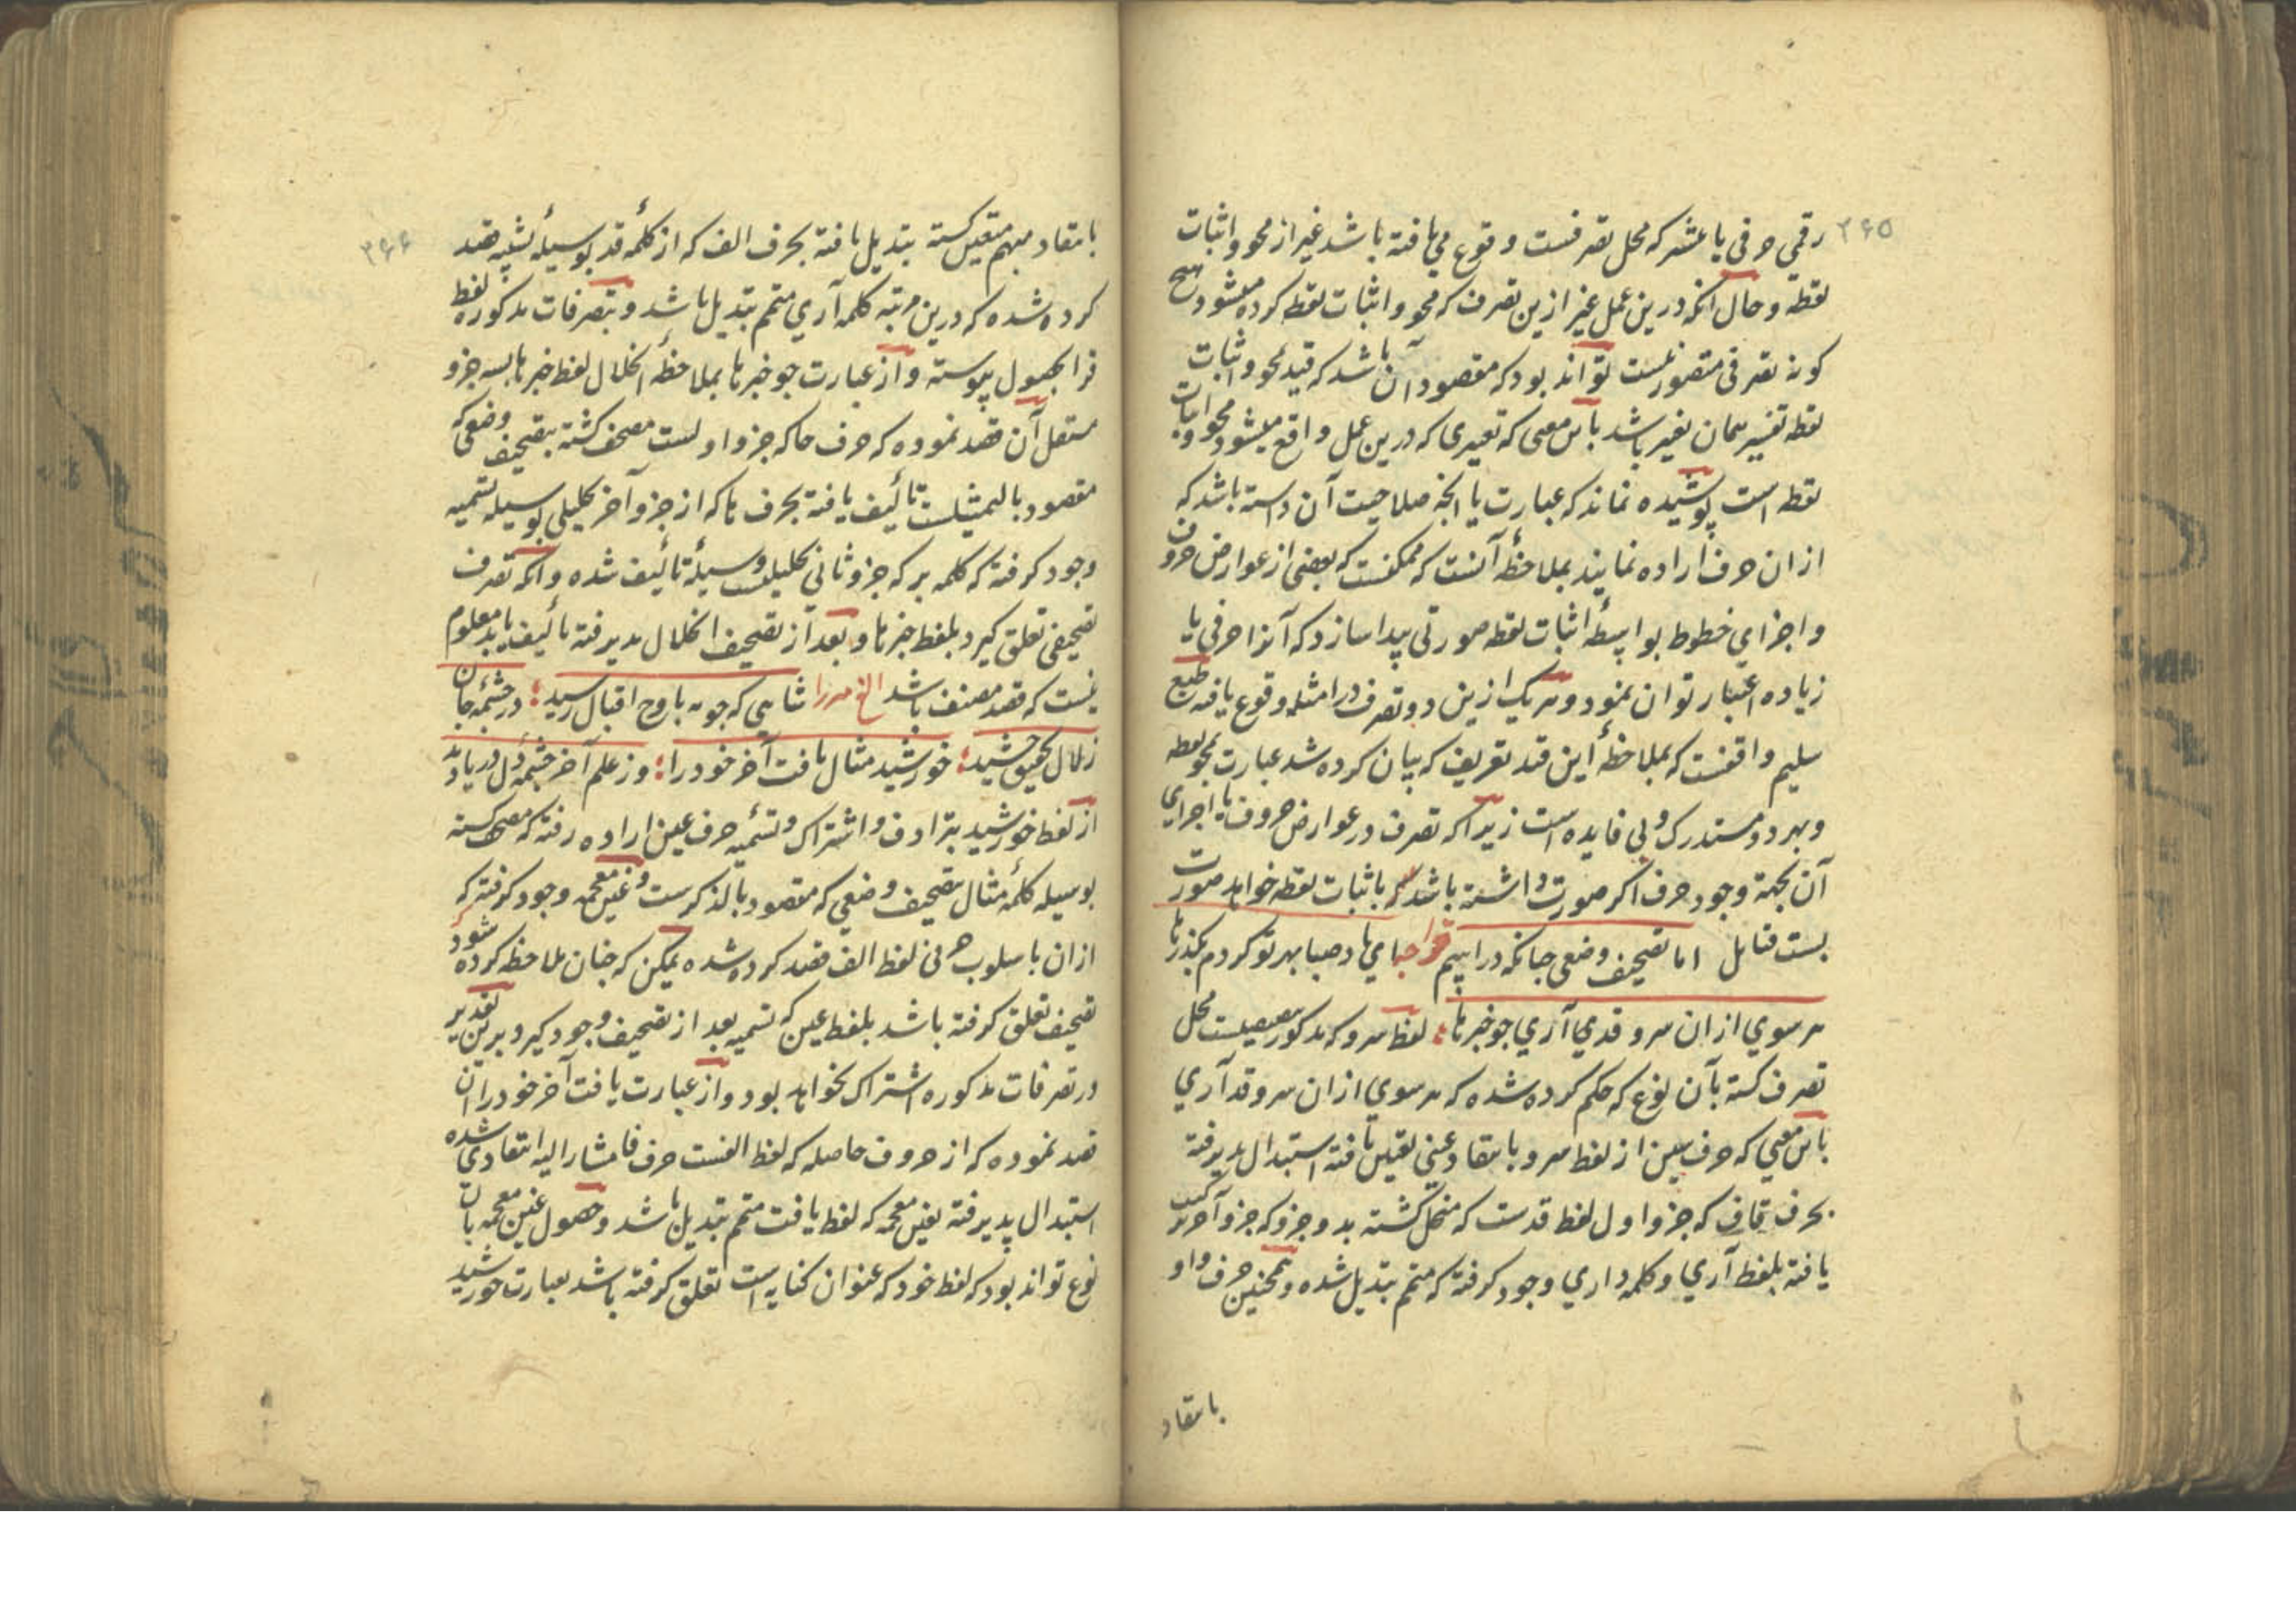 ۲۶۵
رقمی حرفی یا عشر که محل تصرفست وقوع می یافته باشد غیر از محو و اثبات
نقطه و حال آنکه درین عمل غیر ازین تصرف که محو و اثبات نقطه کرده میشود هیچ
کونه تصرفی متصور نیست تواند بود که مقصود آن باشد که قید محو و اثبات
نقطه تفسیر همان تغییر باشد باین معنی که تغییری که درین عمل واقع میشود محو و اثبات
نقطه است پوشیده نماند که عبارت یا آنچه صلاحیت آن داشته باشد که
از ان حرف اراده نمایند بملاحظهٔ آنست که ممکنست که بعضی از عوارض حروف
و اجزای خطوط بواسطهٔ اثبات نقطه صورتی پیدا سازد که آنرا حرفی یا
زیاده اعتبار توان نمود و هر یک ازین دو تصرف در امثله وقوع یافته طبع
سلیم واقفست که بملاحظهٔ این قید تعریف که بیان کرده شد عبارت محو نقطه
و بهر دو مستدرک و بی فایده است زیرا که تصرف در عوارض حروف یا اجزای
آن بجهة وجود حرف اکر صورت داشته باشد بر باثبات نقطه خواهد صورت
بست فتامل اما تصحیف وضعی چنانکه در اسم خواجه ای باد صبا بهر تو کردم بکذر تا
هر سوی ازان سرو قدی آری چو خبرها ؛ لفظ سرو که مذکور محل
تصرف کشته بآن نوع که حکم کرده شده که هر سوی ازان سرو قد آری
باین معنی که حرف سین از لفظ سرو بانتقاد عینی تعیین یافته استبدال پذیرفته
بحرف قاف که جزو اول لفظ قدست که منحل کشته بدو جزو که جزو آخر ترکیب
یافته بلفظ آری و کلمه داری وجود کرفته که متمم تبدیل شده و همچنین حرف واو
بانتقاد
۲۶۶
بانتقاد مبهم متعین کشته تبدیل یافته بحرف الف که از کلمهٔ قد بوسیلهٔ تشبیه قصد
کرده شده که درین مرتبه کلمه آری متمم تبدیل باشد و بتصرفات مذکوره لفظ
فرا بحصول پیوسته و از عبارت جو خبرها بملاحظهٔ انحلال لفظ خبرها بسه جزو
مستقل آن قصد نموده که حرف خا که جزو اولست مصحف کشته بتصحیف وضعی که
مقصود بالتمثیلست تألیف یافته بحرف ها که از جزو آخر تحلیلی بوسیله تسمیه
وجود کرفته که کلمه بر که جزو ثانی تحلیلیست وسیلهٔ تألیف شده و آنکه تصرف
تصحیفی تعلق کیرد بلفظ خبرها و بعد از تصحیف انحلال پذیرفته تألیف یابد معلوم
نیست که قصد مصنف باشد الغ میرزا شاهی که چو مه باوج اقبال رسید ؛ در چشمهٔ جان
زلال تحقیق چشید ؛ خورشید مثال یافت آخر خود را ؛ وز علم آخر چشمهٔ دل دریا دید
از لفظ خورشید بترادف و اشتراک و تسمیه حرف عین اراده رفته که مصحف کشته
بوسیله کلمهٔ مثال بتصحیف وضعی که مقصود بالذکرست و غین معجمه وجود کرفته که
ازان باسلوب حرفی لفظ الف قصد کرده شده یمکن که چنان ملاحظه کرده شود که
تصحیف تعلق کرفته باشد بلفظ عین که تسمیه بعد از تصحیف وجود کیرد و برین تقدیر
در تصرفات مذکوره اشتراک نخواهد بود و از عبارت یافت آخر خود را آن
قصد نموده که از حروف حاصله که لفظ الفست حرف فا مشار الیه انتقادی شده
استبدال پذیرفته بغین معجمه که لفظ یافت متمم تبدیل باشد و حصول غین معجمه بآن
نوع تواند بود که لفظ خود که عنوان کنایه است تعلق کرفته باشد بعبارت خورشید